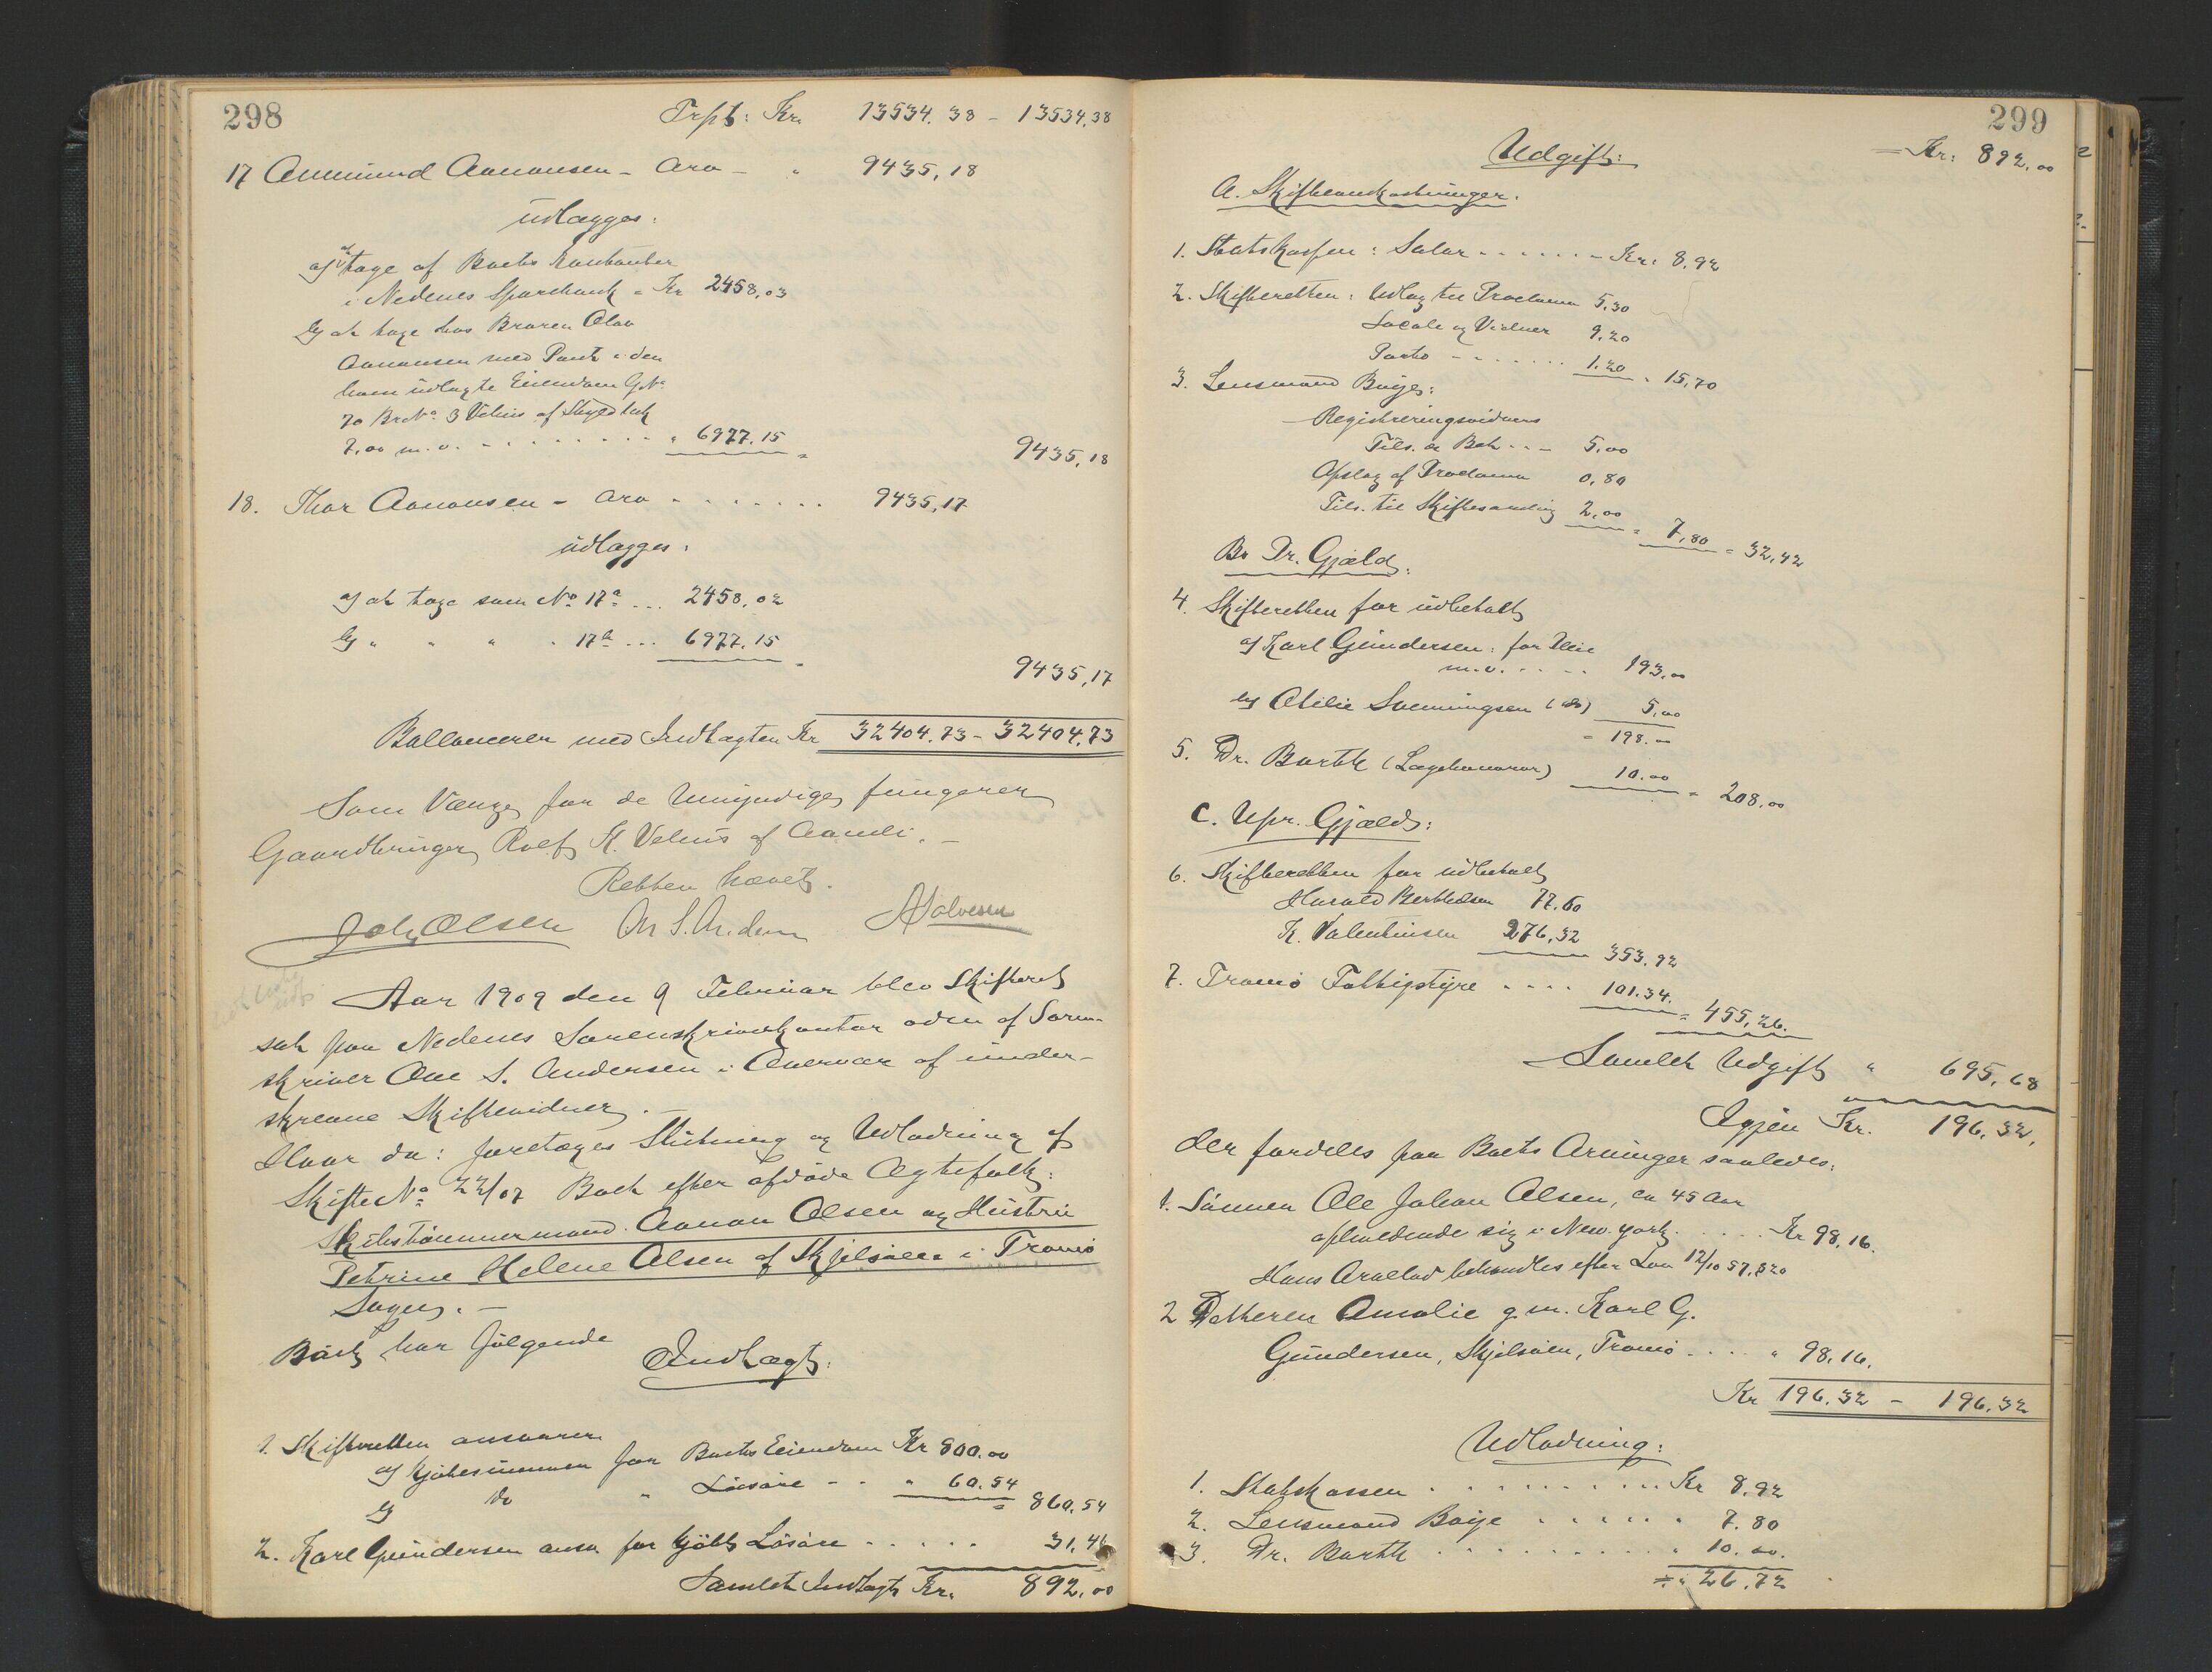 298
Trpt: Kr. 13534.38 - 13534,38
17 Anmund Aanonsen - Arv - " 9435,18
udlægges:
a) at tage af Boets Kontanter
i Nedenes Sparebank = Kr 2458,03
b) at tage hos Broren Olav
Aanonsen med Pant i den
ham udlagte Eiendom G.No
70 Br.No 3 Vehus af Skyld mk
7,00 m.v. - - - - " 6977.15 = 9435,18
18. Thor Aanonsen - Arv - . . . . . 9435,17
udlægges:
a) at tage som No 17a ... 2458,02
b) " " " " 17b ... 6977.15 = 9435,17
Ballancerer med Indtægten Kr 32404.73 - 32404,73
Som Værge for de Umyndige fungerer
Gaardbruger Rolf K. Vehus af Aamli. -
Retten hævet.
Joh. Olsen Ov S. Andersen A Halvorsen
Aar 1909 den 9 Februar blev Skifteret
sat paa Nedenes Sorenskriverkontor aden af Soren-
skriver Ove S. Andersen i Overvær af under-
skrevne Skiftevidner. -
Hvor da: foretages Slutning og Udlodning af
Skifte No 22/07 Boet efter afdøde Ægtefolk:
Skibstømmermand Aanon Olsen og Hustru
Petrine Helene Olsen af Skjelsøen i Tromø
Sogn. -
Boet har følgende
Indtægt:
1. Skifteretten ansvarer
a) Kjøbesummen for Boets Eiendom Kr 800.00
b) do " Løsøre - - " 60.54 = 860.54
2. Karl Gundersen ansv for kjøbt Løsøre . . . . . 31,46
Samlet Indtægt Kr. 892,00
299
= Kr: 892,00
Udgift:
A. Skifteomkostninger.
1. Statskassen: Salar - - - - - Kr: 8,92
2. Skifteretten: Udlæg til Proclama 5,30
Locale og Vidner 9,20
Porto - - - - - 1.20 " 15,70
3. Lensmand Boije:
Registreringsvidners
Tils. og Bek - - - 5,00
Opslag af Proclama 0,80
Tils. til Skiftesamling 2,00 = 7,80 = 32,42
B. Pr. Gjæld:
4. Skifteretten for udbetalt
a) Karl Gundersen: for Pleie
m.v. . . . . 193,00
b) Otilie Svenningsen (do) 5,00
= 198.00
5. Dr. Barth (Lægehonorar) 10.00 = 208,00
C. Upr. Gjæld:
6. Skifteretten for udbetalt
Harald Berthelsen 77.60
K. Valentinsen 276,32 353.92
7. Tromø Fattigstyre . . . . 101.34. = 455,26.
Samlet Udgift " 695,68
Igjen Kr. 196,32,
der fordeles paa Boets Arvinger saaledes:
1. Sønnen Ole Johan Olsen, ca 45 Aar
opholdende sig i New York . . . . Kr 98,16.
Hans Arvelod behandles efter Lov 12/10 57, § 20
2 Datteren Amalie g.m. Karl G.
Gundersen, Skjelsøen, Tromø . . . . " 98,16.
Kr 196.32 - 196.32
Udlodning:
1. Statskassen . . . . . . . . Kr 8,92
2. Lensmand Boije . . . . . . " 7.80
3. Dr. Barth . . . . . . . . " 10.00.
= " 26,72